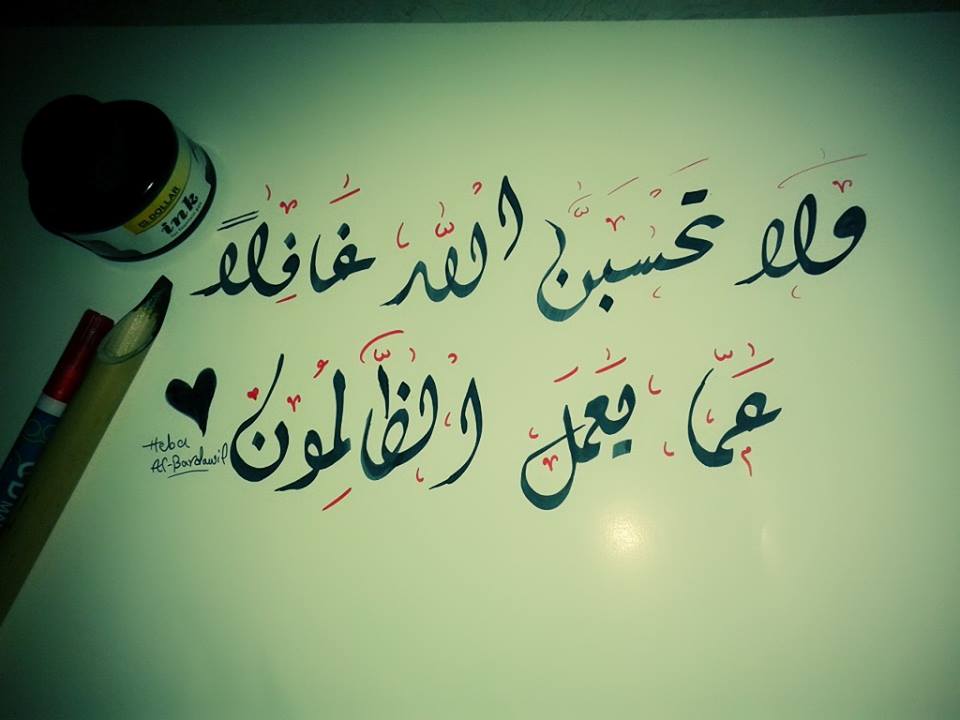 وَلَا تَحْسَبَنَّ اللَّهَ غَافِلًا
عَمَّا يَعْمَلُ الظَّالِمُونَ
Heba
Al-Bardawil
EL DOLLAR
ink